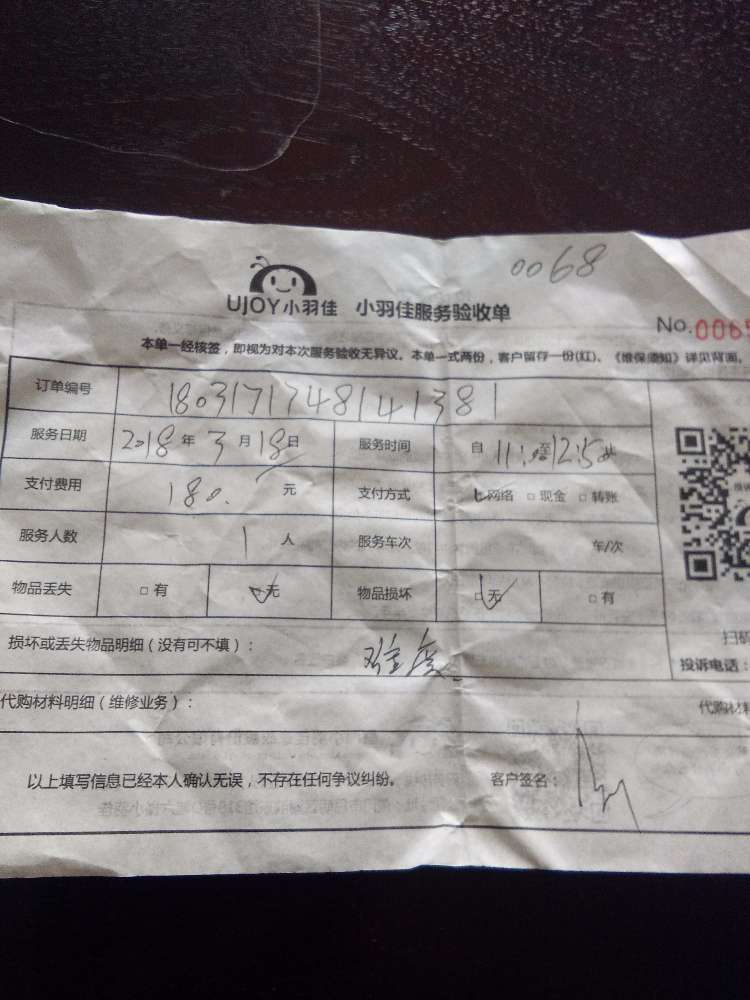 0068
UJOY小羽佳 小羽佳服务验收单
No.006
本单一经核签，即视为对本次服务验收无异议。本单一式两份，客户留存一份(红)、《维保须知》详见背面。
订单编号 1803171748141381
服务日期 2018年3月18日 服务时间 自 11: 至12:5
支付费用 180. 元 支付方式 网络 □ 现金 □ 转账
服务人数 1 人 服务车次 车/次
物品丢失 □ 有 □ 无 物品损坏 □ 无 □ 有
扫码
损坏或丢失物品明细（没有可不填）：
投诉电话：
代购材料明细（维修业务）： 代购材料
以上填写信息已经本人确认无误，不存在任何争议纠纷。 客户签名：